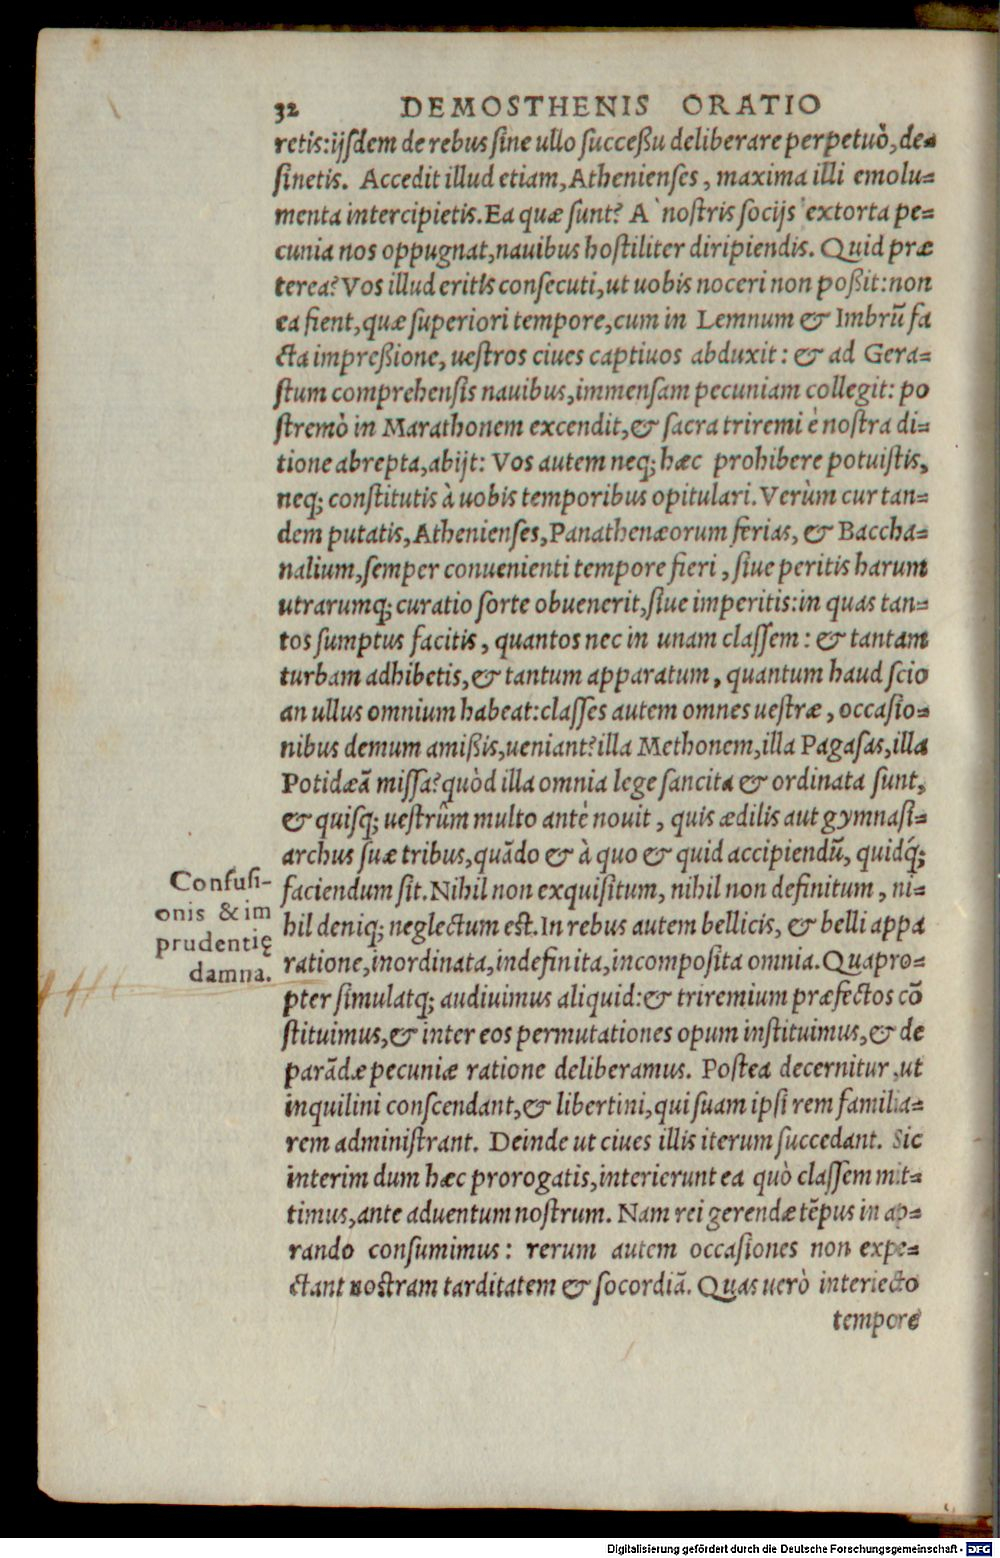 32 DEMOSTHENIS ORATIO
retis:ijſdem de rebus ſine ullo ſucceßu deliberare perpetuò, de=
ſinetis. Accedit illud etiam, Athenienſes, maxima illi emolu=
menta intercipietis. Ea quæ ſunt? A` noſtris ſocijs extorta pe=
cunia nos oppugnat, nauibus hoſtiliter diripiendis. Quid præ
terea? Vos illud eritis conſecuti, ut uobis noceri non poßit: non
ea fient, quæ ſuperiori tempore, cum in Lemnum & Imbrū fa
cta impreßione, ueſtros ciues captiuos abduxit: & ad Gera=
ſtum comprehenſis nauibus, immenſam pecuniam collegit: po
ſtremò in Marathonem excendit, & ſacra triremi è noſtra di=
tione abrepta, abijt: Vos autem neq; hæc prohibere potuiſtis,
neq; conſtitutis à uobis temporibus opitulari. Verùm cur tan=
dem putatis, Athenienſes, Panathenæorum ferias, & Baccha=
nalium, ſemper conuenienti tempore fieri, ſiue peritis harum
utrarumq; curatio ſorte obuenerit, ſiue imperitis: in quas tan=
tos ſumptus facitis, quantos nec in unam claſſem: & tantam
turbam adhibetis, & tantum apparatum, quantum haud ſcio
an ullus omnium habeat: claſſes autem omnes ueſtræ, occaſio=
nibus demum amißis, ueniant? illa Methonem, illa Pagaſas, illa
Potidæā miſſa? quòd illa omnia lege ſancita & ordinata ſunt,
& quiſq; ueſtrûm multo antè nouit, quis ædilis aut gymnaſi=
archus ſuæ tribus, quādo & à quo & quid accipiendū, quidq́;
faciendum ſit. Nihil non exquiſitum, nihil non definitum, ni=
hil deniq; neglectum est. In rebus autem bellicis, & belli appa
ratione, inordinata, indefinita, incompoſita omnia. Quapro=
pter ſimulatq; audiuimus aliquid: & triremium præfectos cō
ſtituimus, & inter eos permutationes opum inſtituimus, & de
parādæ pecuniæ ratione deliberamus. Poſtea decernitur, ut
inquilini conſcendant, & libertini, qui ſuam ipſi rem familia=
rem adminiſtrant. Deinde ut ciues illis iterum ſuccedant. Sic
interim dum hæc prorogatis, interierunt ea quò claſſem mit=
timus, ante aduentum noſtrum. Nam rei gerendæ tēpus in ap=
rando conſumimus: rerum autem occaſiones non expe=
ctant noſtram tarditatem & ſocordiā. Quas uerò interiecto
tempore
Confuſi-
onis & im
prudentię
damna.
Digitalisierung gefördert durch die Deutsche Forschungsgemeinschaft - DFG